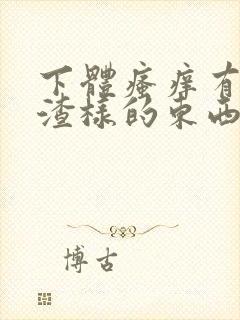 下體瘙痒有
渣樣的東西
博古